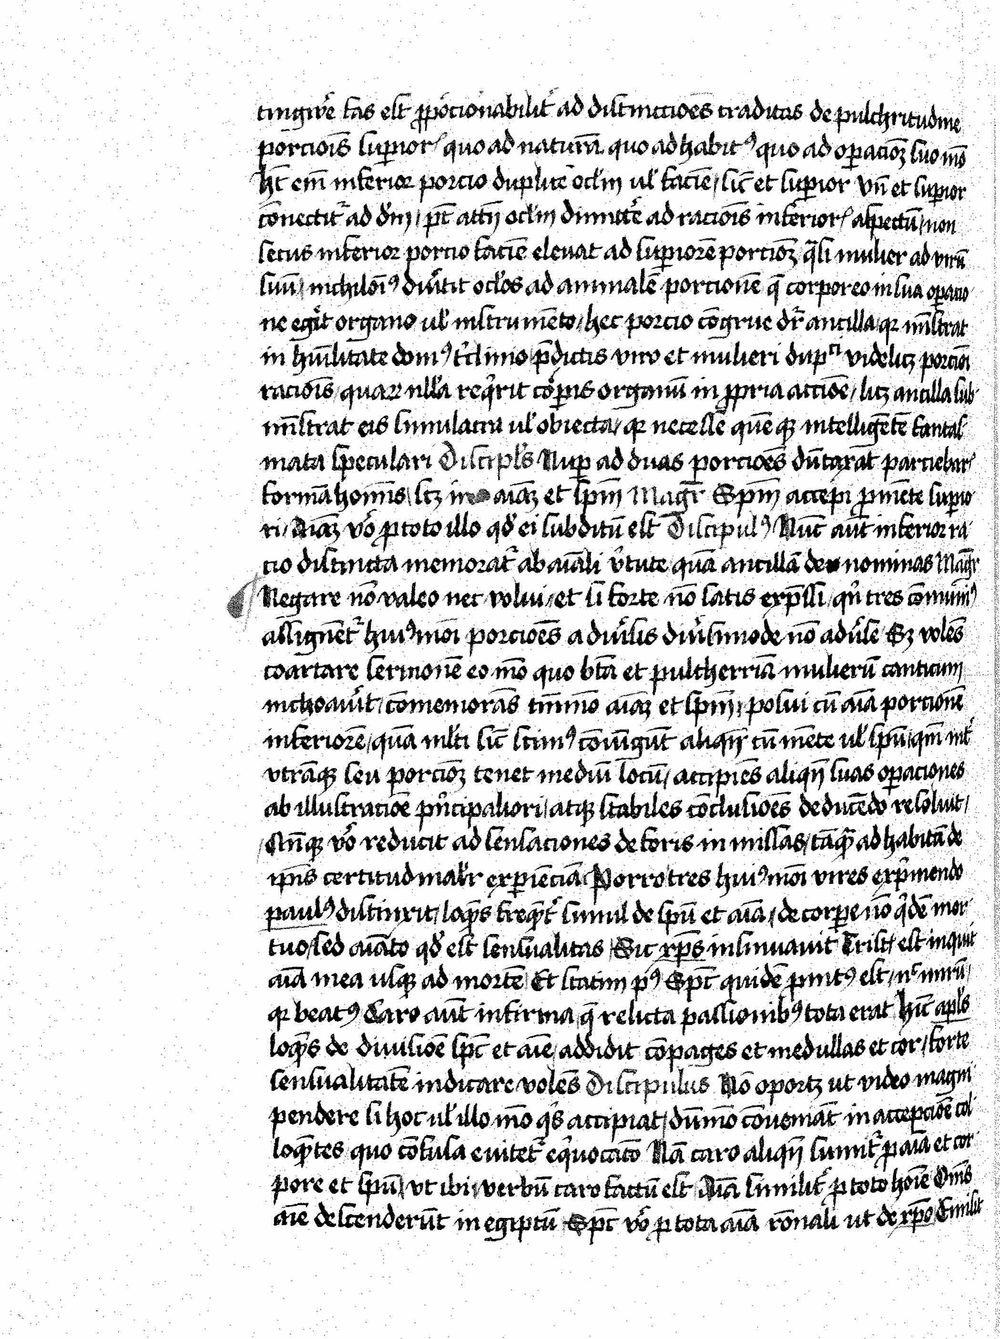 tingūe fas est ꝓpōcionabilit᷑ ad distinctiōes traditas de pulchritudine
porciōis supior᷑ quo ad naturā quo ad habit᷒ quo ad opacioꝫ suo mō
hꝫ em̄ inferior porcio duplicē ocl̄m ul̓ faciē / sic̄ et supior vn̄ et supior
cōnectit᷑ ad dm̄ / pt̄ attn̄ ocl̄m dimittē ad raciōis inferior᷑ aspectū / non
secus inferior porcio faciē eleuat ad supiorē porcioꝫ q̄si mulier ad virū
suū / nichilōi᷒ diūtit ocl̓os ad animalē porcionē q̄ corporeo in sua opacio
ne eget organo ul̓ instrumēto / hec porcio cōgrue dr̄ ancilla / qꝛ mīstrat
in hūilitate dom᷒ p̄dictis viro et mulieri dup videlicꝫ porcōi
raciōis / quaꝝ nll̓a req̄rit corpis organū in ꝓpria acciōe / licꝫ ancilla sub
mīstrat eis simulacra ul̓ obiecta / qꝛ necesse quēqꝫ intelligētē fantas
mata speculari Discipl̓s Nup ad duas porciōes dūtaxat parciebar᷑
formā hominis / scꝫ in aīaꝫ et spm̄ Magr̄ Spm̄ accepi ꝓ mēte supio
ri / Aīaꝫ vō ꝓ toto illo qd̓ ei subditū est Discipul᷒ Nūc aūt inferior ra
cio distincta memorat᷑ ab aīali v̓tute quā ancillā de nominas Magr̄
Negare nō valeo nec volui / et si forte nō satis exp̄ssi / qn̄ tres cōmuni᷒
assignent᷑ hui᷒mōi porciōes a diu̓sis diu̓simode nō adu̓se Sꝫ volēs
coartare sermonē eo mō quo bt̄a et pulcherria mulierū canticum
inchoauit / cōmemorās tm̄mō aīaꝫ et spm̄ / posui cū aīa porcionē
inferiorē / quā ml̓ti sic̄ scim᷒ cōiūgūt aliqn̄ cū mēte ul̓ spū / qm̄ int̓
vtrāqꝫ seu porcioꝫ tenet mediū locū / accipiēs aliqn̄ suas opaciones
ab illustraciōe pn̓cipaliori / atqꝫ stabiles cōclusiōes deducēdo resoluit /
Qn̄qꝫ vō reducit ad sensaciones de foris in missas / tāq̄ ad habitā de
ip̄is certitudīal̓r expiēciā Porro tres hui᷒mōi vires exp̓mendo
paul᷒ distinxit / loq̄ns freqn̄t᷑ simul de spū et aīa / de corpe nō q̓dē mor
tuo / sed aīato qd̓ est sensualitas Sic xp̄s insinuauit Trist᷑ est inquit
aīa mea usqꝫ ad mortē Et statim p᷒ Spc̄ quidē ꝓmt᷒ est / nᶜ mirū /
qꝛ beat᷒ Caro aūt infirma q̄ relicta passionib᷒ tota erat Hīc apl̓s
loq̄ns de diuisiōe spc̄ et aīe / addidit cōpages et medullas et cor / forte
sensualitatē indicare volēs Discipulus Nō oportꝫ ut video magni
pendere si hoc ul̓ illo mō q̓s accipiat / dūmō cōueniāt in accepciōe col
loq̄ntes quo cōfusa euitet᷑ eq̓uocaco Nā caro aliqn̄ sumit᷑ ꝓ aīa et cor
pore et spū / vt ibi / verbū caro factū est Aīa similit᷑ ꝓ toto hoīe Om̄s
aīe descenderūt in egiptū Spc̄ vō ꝓ tota aīa rōnali ut de xp̄o Emisit